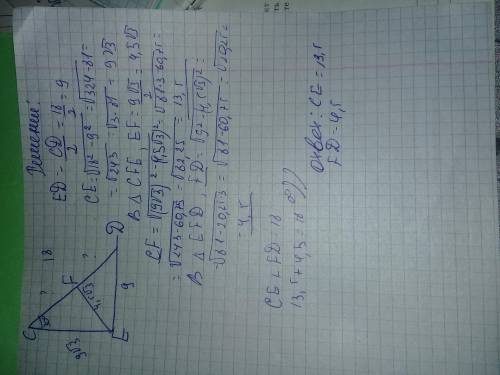 Решение:
ED = CD/2 = 18/2 = 9
CE = √18² - 9² = √324 - 81 =
= √243 = √3 · 81 = 9√3
В Δ CFE, EF = 9√3/2 = 4,5√3
CF = √(9√3)² - (4,5√3)² = √81·3 - 60,75 =
= √243 - 60,75 = √182,25 = 13,5
В Δ EFD, FD = √9² - (4,5√3)² =
= √81 - 20,25·3 = √81 - 60,75 = √20,25 =
= 4,5
CE + FD = 18
13,5 + 4,5 = 18
Ответ: CE = 13,5
FD = 4,5
C
18
?
F
?
D
9√3
4,5√3
E
9